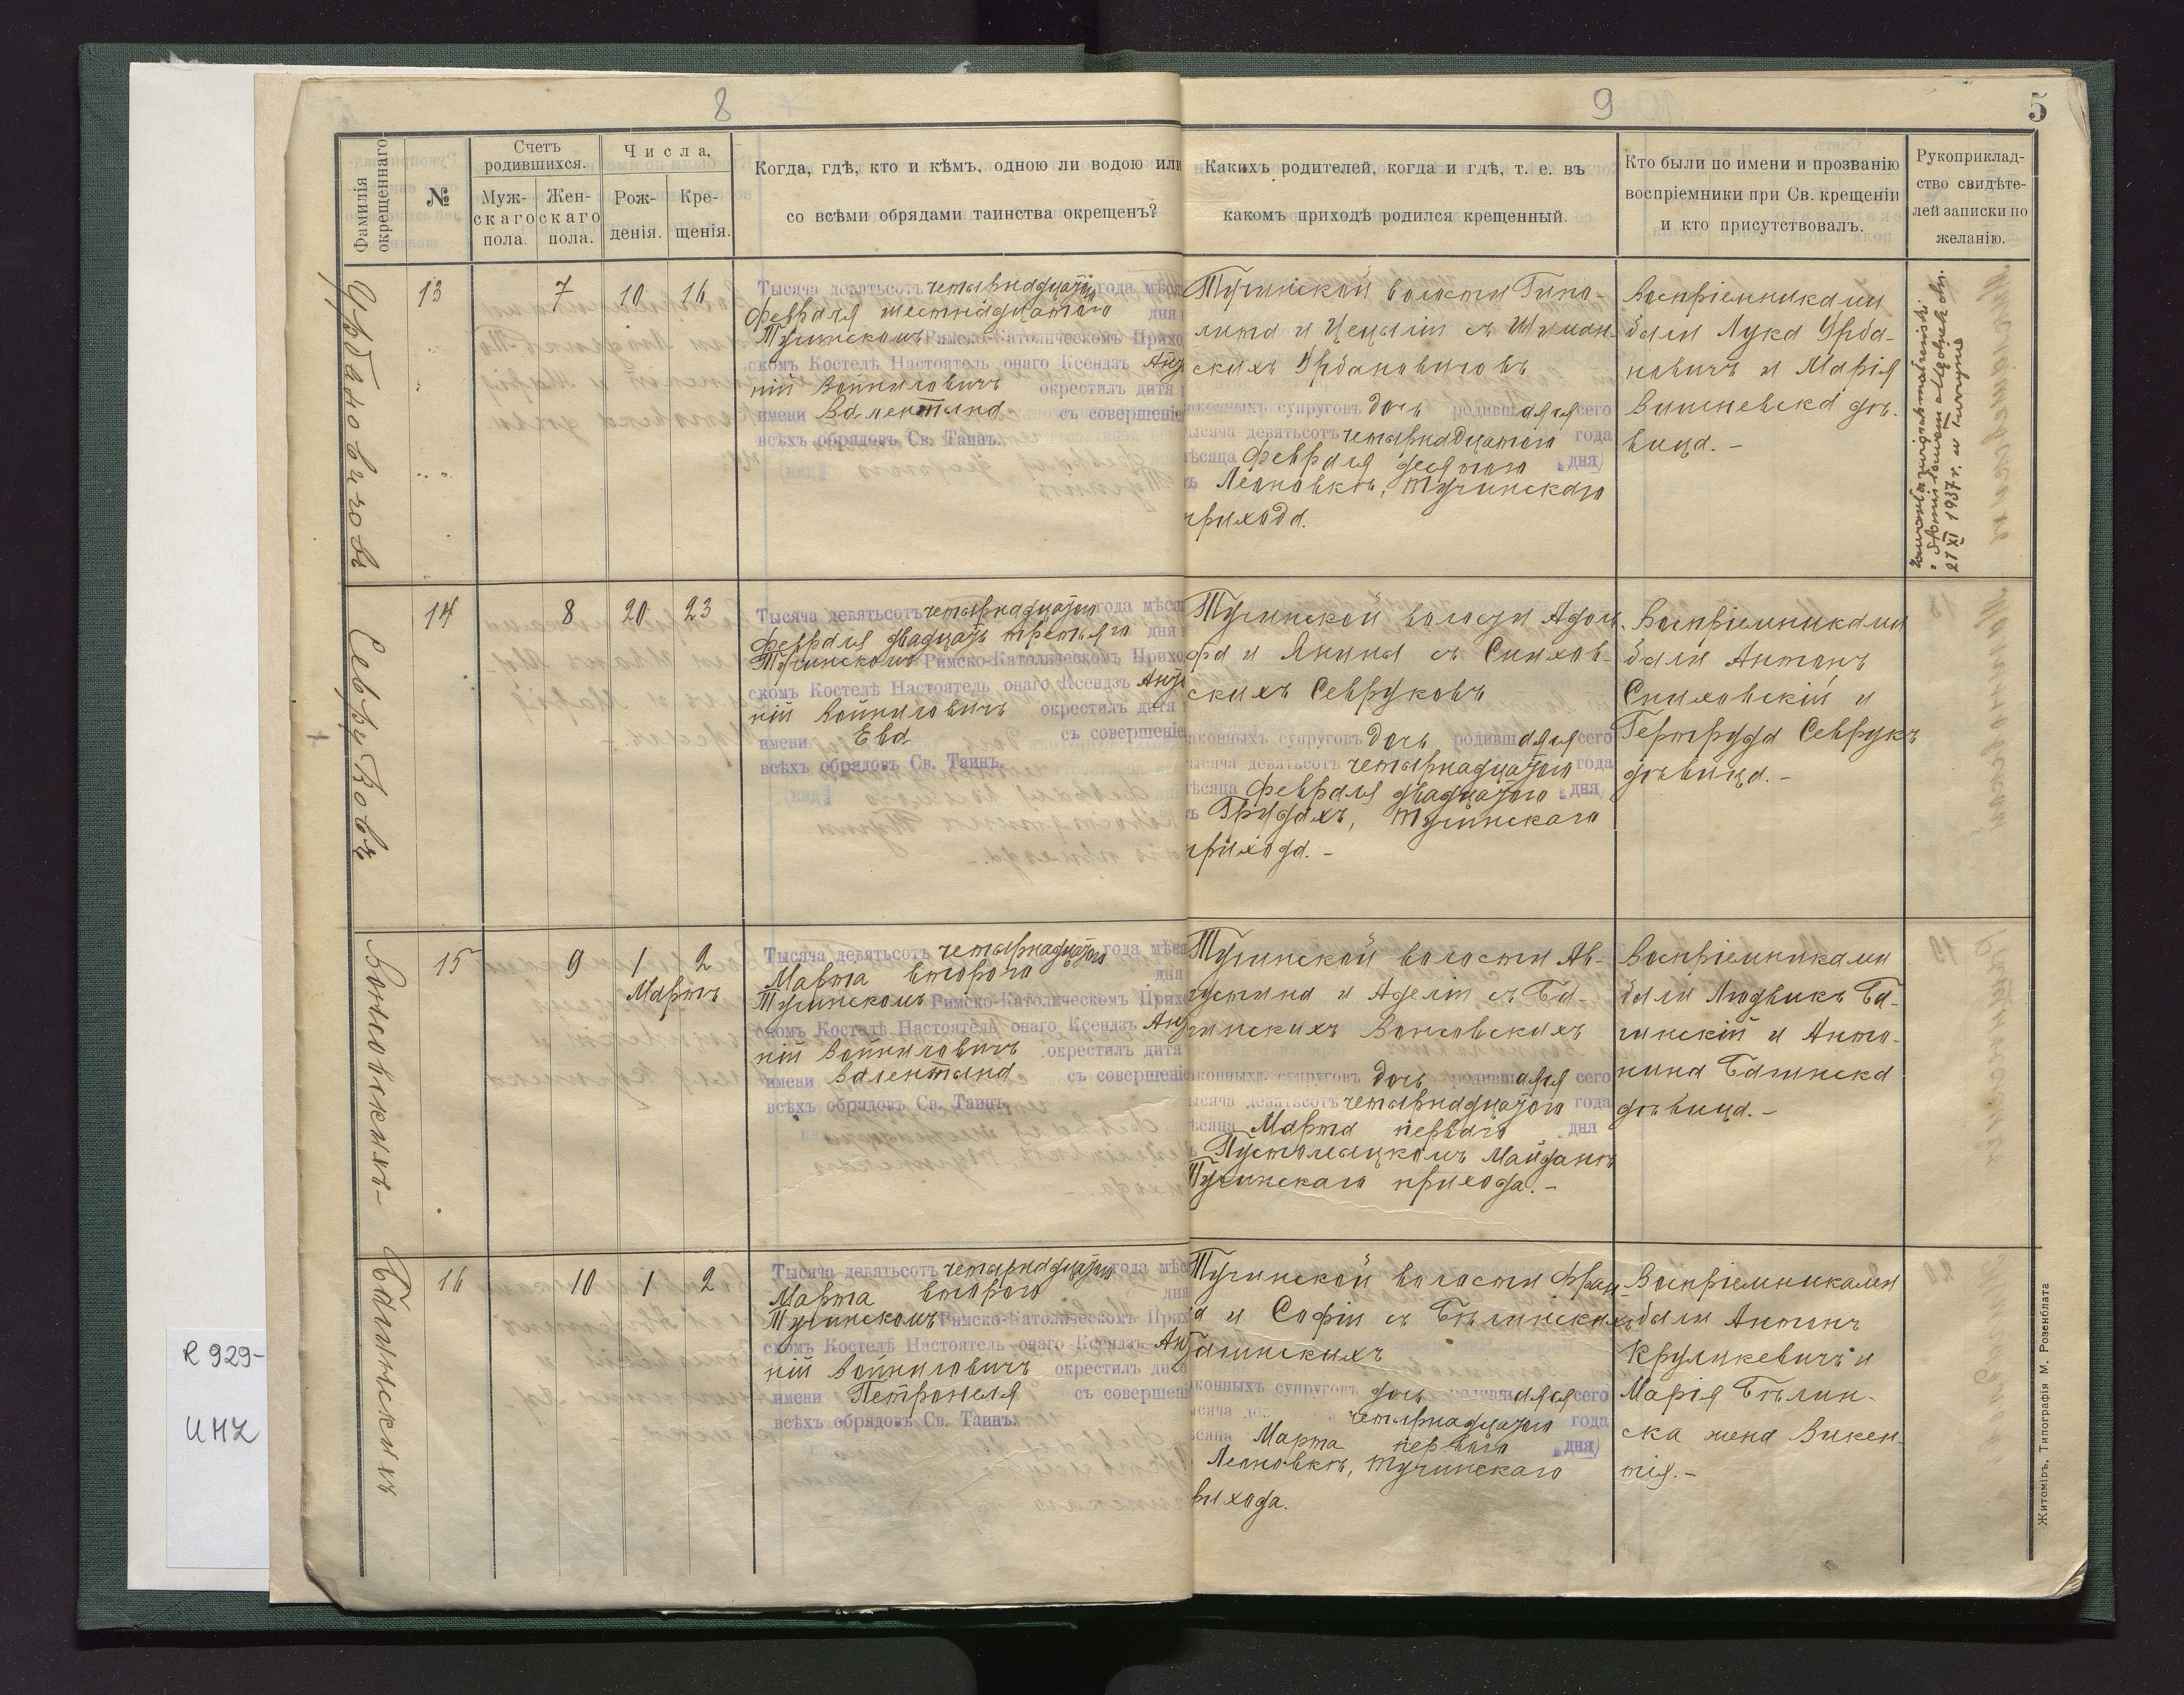 8
9
5
Фамилія окрещеннаго
№
Счетъ родившихся.
Муж-
скаго
пола.
Жен-
скаго
пола.
Числа.
Рож-
денія.
Кре-
щенія.
Когда, гдѣ, кто и кѣмъ, одною ли водою или
со всѣми обрядами таинства окрещенъ?
Какихъ родителей, когда и гдѣ, т. е. въ
какомъ приходѣ родился крещенный.
Кто были по имени и прозванію
воспріемники при Св. крещеніи
и кто присутствовалъ.
Рукоприклад-
ство свидѣте-
лей записки по
желанію.
Урбановичовъ
13 7 10 16
Тысяча девятьсотъ четырнадцатаго года мѣся
Февраля шестнадцатаго дня
Тучинскомъ Римско-Католическомъ Прихо
скомъ Костелѣ Настоятель онаго Ксендзъ Анто
ній Войниловичъ окрестилъ дитя
имени Валентына съ совершеніе
всѣхъ обрядовъ Св. Таинъ.
Тучинской волости Гипо-
лита и Цециліи съ Шиман-
скихъ Урбановичовъ
аконныхъ супруговъ дочь родившаяся сего
ысяча девятьсотъ четырнадцатаго года
ѣсяца Февраля десятаго дня
ъ Леоновкѣ, Тучинскаго
прихода.
Воспріемниками
были Лука Урба-
новичъ и Марія
Вишневска дѣ-
вица. -
21 XI 1937 r.
Севруковъ
14 8 20 23
Тысяча девятьсотъ четырнадцатаго года мѣся
Февраля двадцать третьяго дня
Тучинскомъ Римско-Католическомъ Прихо
скомъ Костелѣ Настоятель онаго Ксендзъ Анто
ній Войниловичъ окрестилъ дитя
имени Ева съ совершеніе
всѣхъ обрядовъ Св. Таинъ.
Тучинской волости Адоль-
фа и Янины съ Снихов-
скихъ Севруковъ
аконныхъ супруговъ дочь родившаяся сего
ысяча девятьсотъ четырнадцатаго года
ѣсяца Февраля двадцатаго дня
ъ Грудахъ, Тучинскаго
прихода. -
Воспріемниками
были Антонъ
Сниховскій и
Гертруда Севрукъ
дѣвица. -
Вонсовскихъ-
15 9 1 2
Мартъ
Тысяча девятьсотъ четырнадцатаго года мѣся
Марта второго дня
Тучинскомъ Римско-Католическомъ Прихо
скомъ Костелѣ Настоятель онаго Ксендзъ Анто
ній Войниловичъ окрестилъ дитя
имени Валентына съ совершеніе
всѣхъ обрядовъ Св. Таинъ.
Тучинской волости Ав-
густина и Аделіи съ Ба-
гинскихъ Вонсовскихъ
аконныхъ супруговъ дочь родившаяся сего
ысяча девятьсотъ четырнадцатаго года
ѣсяца Марта перваго дня
Пустомыцкомъ Майданѣ
Тучинскаго прихода. -
Воспріемниками
были Людвикъ Ба-
гинскій и Анто-
нина Багинска
дѣвица. -
Багинскихъ
16 10 1 2
Тысяча девятьсотъ четырнадцатаго года мѣс
Марта второго дня
Тучинскомъ Римско-Католическомъ Прих
скомъ Костелѣ Настоятель онаго Ксендзъ Ант
ній Войниловичъ окрестилъ дитя
имени Петронеля съ совершені
всѣхъ обрядовъ Св. Таинъ.
Тучинской волости Фран-
а и Софіи съ Бѣлинскихъ
Багинскихъ
конныхъ супруговъ дочь родившаяся сего
ысяча четырнадцатаго года
ѣсяца Марта перваго дня
Леоновкѣ, Тучинскаго
рихода.
Воспріемниками
были Антонъ
Круликевичъ и
Марія Бѣлин-
ска жена Викен-
тія. -
Житоміръ, Типографія М. Розенблата
R 929-
UMZ